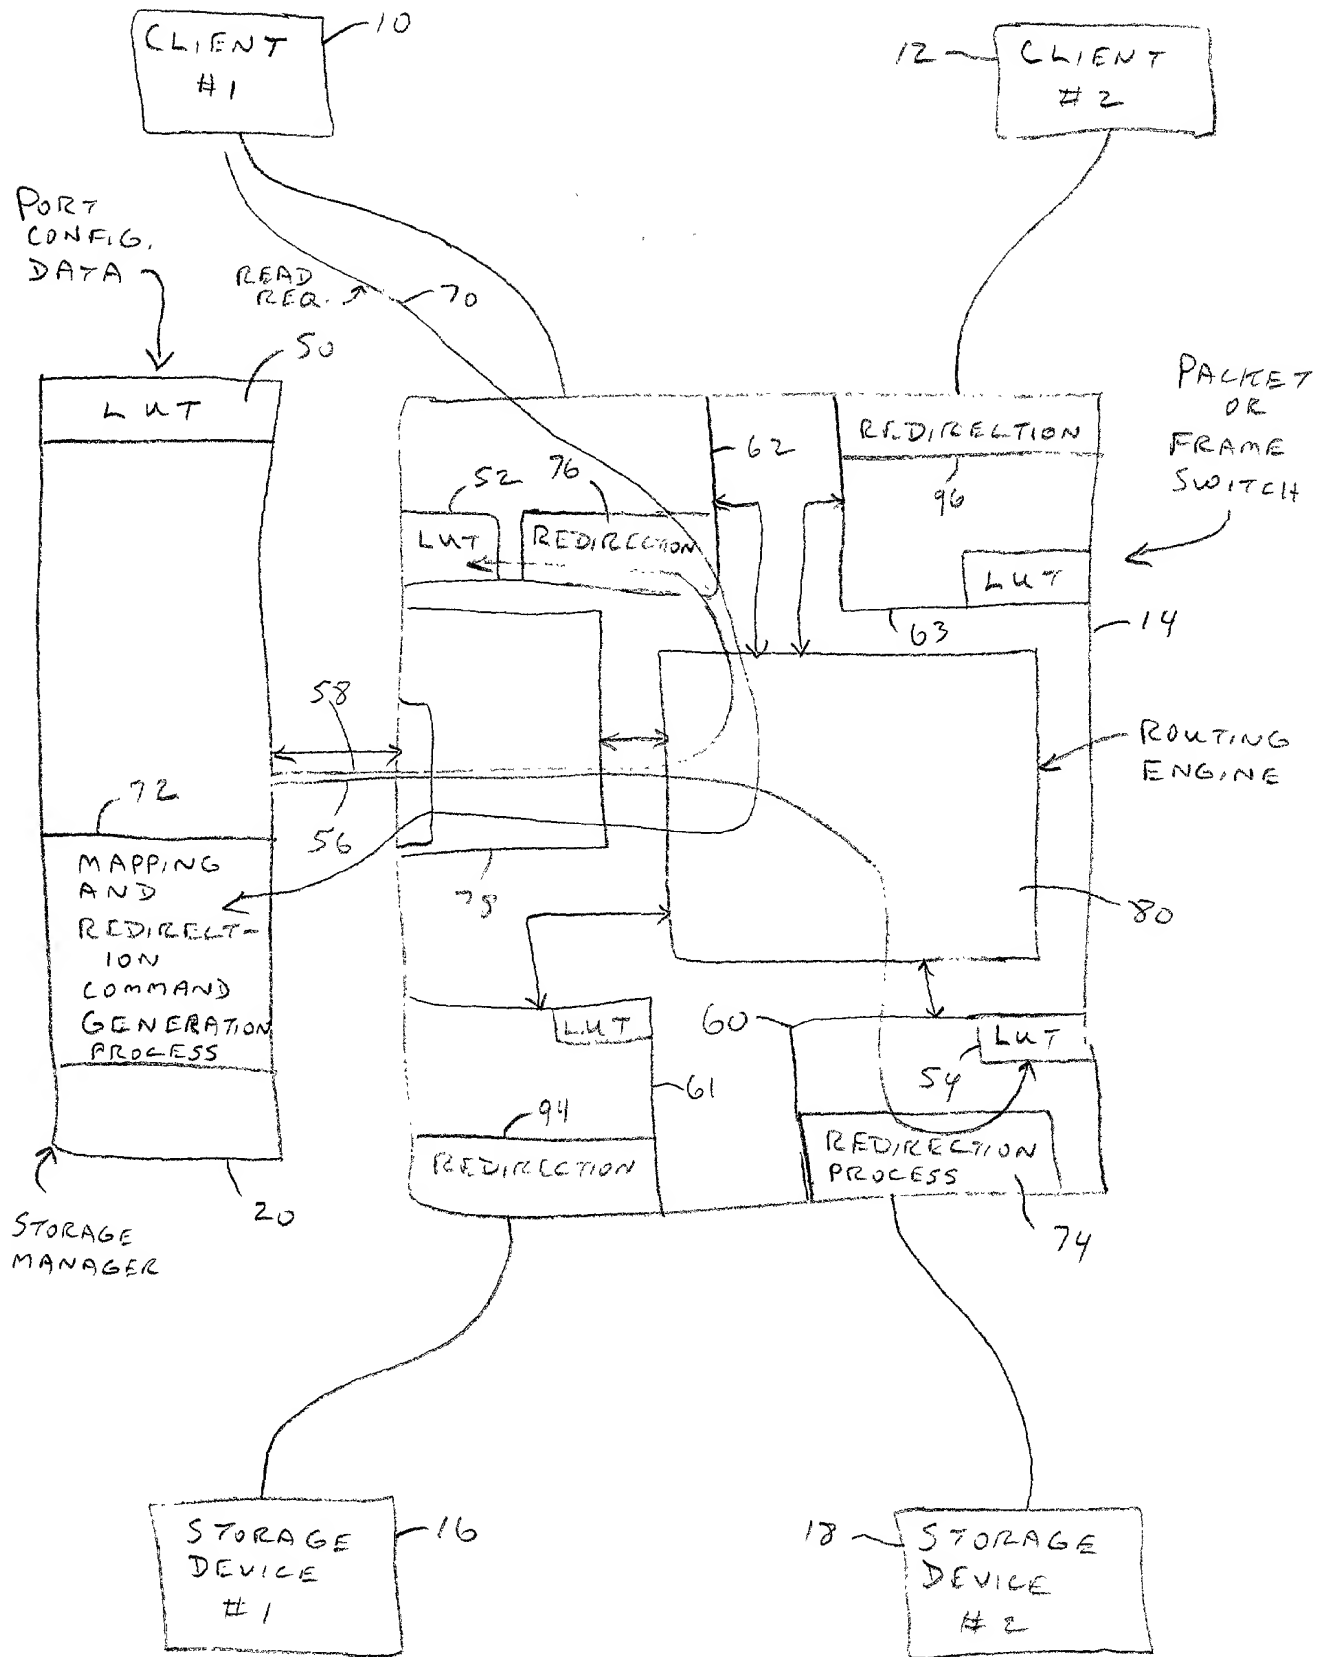 CLIENT
#1
10
12
CLIENT
#2
PORT
CONFIG.
DATA
READ
REQ.
70
50
LUT
62
REDIRECTION
96
PACKET
OR
FRAME
SWITCH
52
76
LUT
REDIRECTION
LUT
63
14
58
56
ROUTING
ENGINE
72
MAPPING
AND
REDIRECT-
ION
COMMAND
GENERATION
PROCESS
78
80
LUT
60
LUT
54
61
94
REDIRECTION
REDIRECTION
PROCESS
74
20
STORAGE
MANAGER
STORAGE
DEVICE
#1
16
18
STORAGE
DEVICE
#2